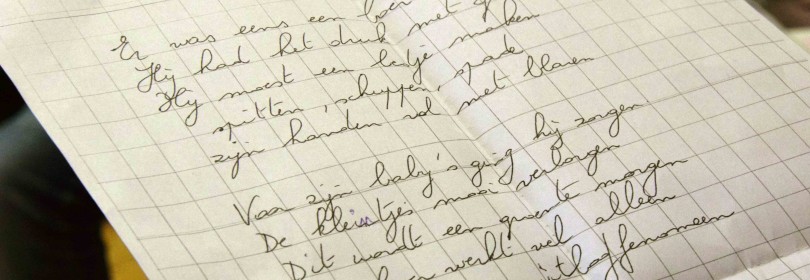 Er was eens een boer
Hij had het druk met
Hij moest een bedje maken
spitten, schuppen, spade
zijn handen vol met blaren
Voor zijn baby's ging hij zorgen
De kleintjes mooi verborgen
Dit wordt een groente morgen
werkt veel alleen